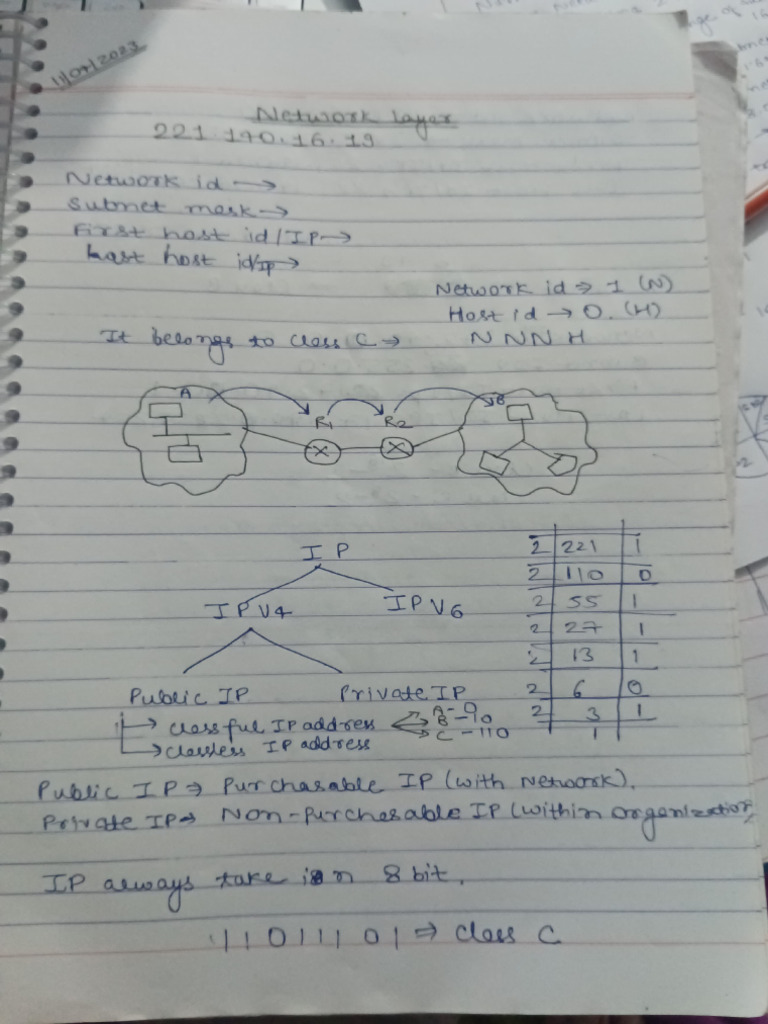 11/07/2023
Network layer
221.170.16.19
Network id →
Subnet mask →
First host id/IP →
Last host id/IP →
Network id ⇒ 1 (N)
Host id → 0. (H)
It belongs to class C ⇒ N N N H
A
R1
R2
B
IP
IPV4
IPV6
Public IP
Private IP
→ classful IP address
A-0
B-10
C-110
→ classless IP address
2 221 1
2 110 0
2 55 1
2 27 1
2 13 1
2 6 0
2 3 1
1
Public IP ⇒ Purchasable IP (with Network).
Private IP ⇒ Non-purchesable IP (within organization)
IP always take in 8 bit.
11011101 ⇒ class C